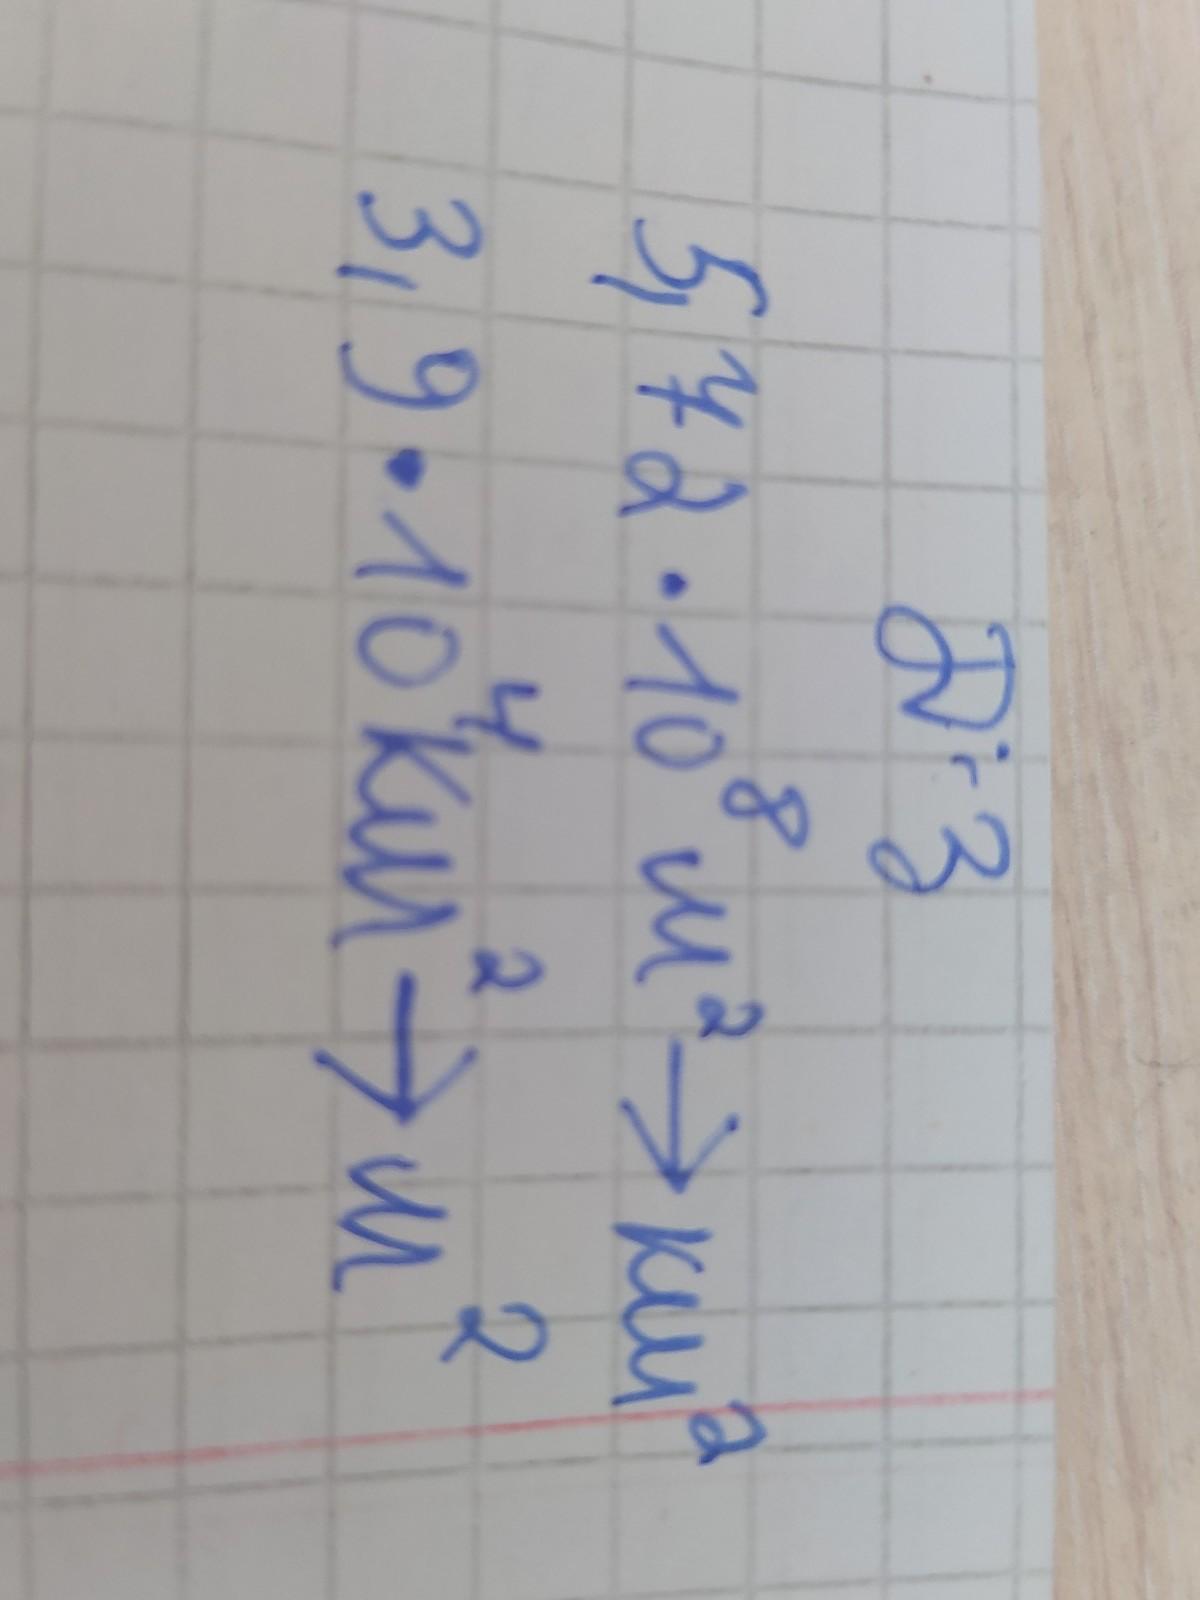 Д-З
5,72 · 10⁸ м² → км²
3,9 · 10⁴ км² → м²